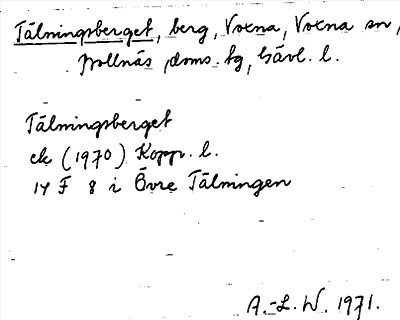 Tälningsberget, berg, Voxna, Voxna sn,
Bollnäs doms. tg, Gävl. l.
Tälningsberget
ek (1970) Kopp. l.
14 F 8 i Övre Tälningen
A.-L. W. 1971.